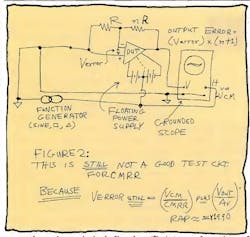 R nR
OUTPUT ERROR=
(Verror) x (n+1)
DUT
Verror
V H
Vcm
FUNCTION
GENERATOR
(SINE, □, △)
FLOATING
POWER
SUPPLY
GROUNDED
SCOPE
FIGURE 2:
THIS IS STILL NOT A GOOD TEST CKT.
FOR CMRR
BECAUSE VERROR STILL = (VCM/CMRR) PLUS (VOUT/AV)
RAP